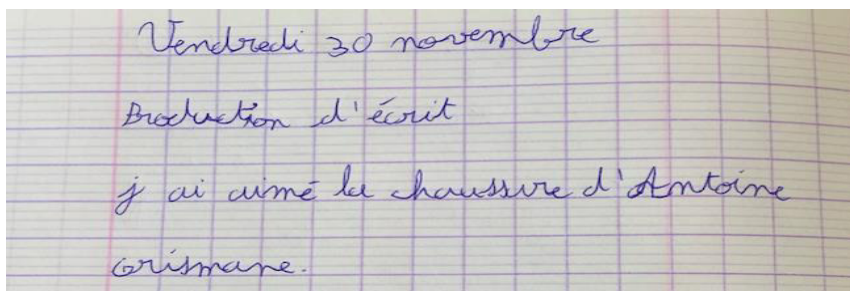 Vendredi 30 novembre
Production d'écrit
j ai aimé la chaussure d'Antoine
Grismane.